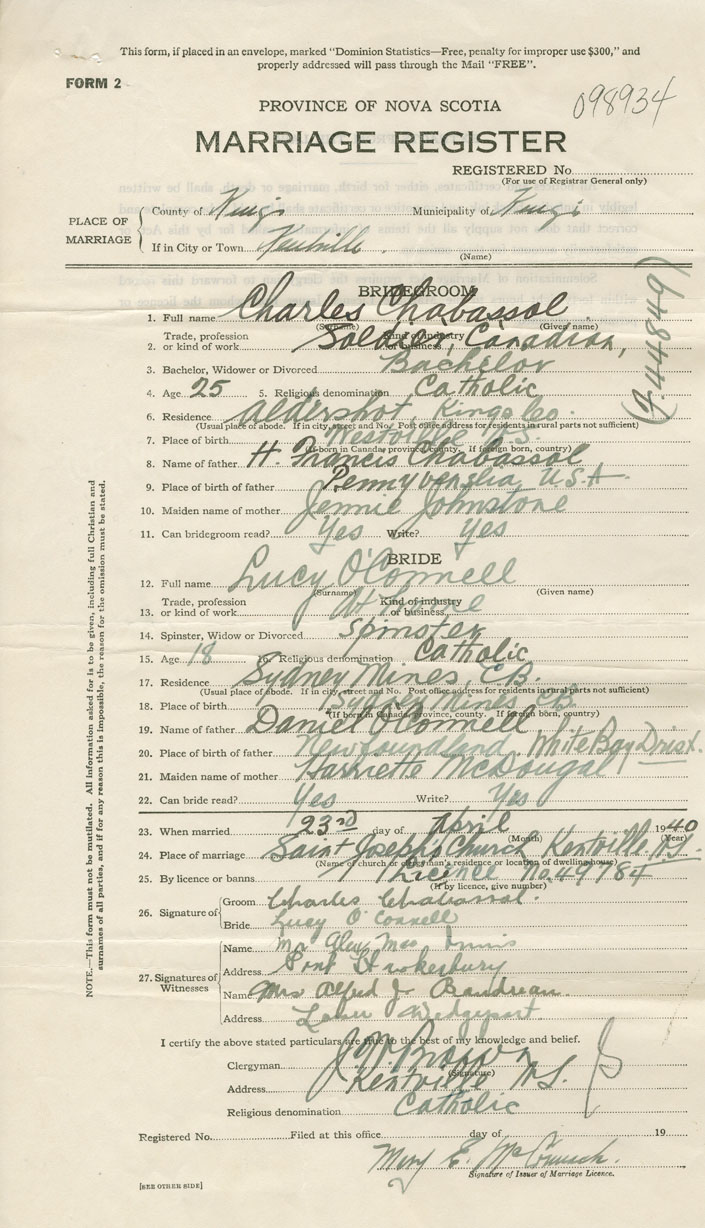 This form, if placed in an envelope, marked "Dominion Statistics—Free, penalty for improper use $300," and
properly addressed will pass through the Mail "FREE".
FORM 2
098934
PROVINCE OF NOVA SCOTIA
MARRIAGE REGISTER
REGISTERED No.
(For use of Registrar General only)
PLACE OF MARRIAGE
County of Kings Municipality of Kings
If in City or Town Kentville
(Name)
BRIDEGROOM
1. Full name Charles Chabassol
(Surname) (Given name)
2. Trade, profession or kind of work Soldier, Canadian, Kind of industry or business
3. Bachelor, Widower or Divorced Bachelor
4. Age 25 5. Religious denomination Catholic
6. Residence Aldershot, Kings Co.
(Usual place of abode. If in city, street and No. Post office address for residents in rural parts not sufficient)
7. Place of birth Westville N.S.
(If born in Canada, province, county. If foreign born, country)
8. Name of father H. Francis Chabassol
9. Place of birth of father Pennyvenslia, U.S.A.
10. Maiden name of mother Jennie Johnstone
11. Can bridegroom read? Yes Write? Yes
BRIDE
12. Full name Lucy O'Connell
(Surname) (Given name)
13. Trade, profession or kind of work At Home Kind of industry or business
14. Spinster, Widow or Divorced Spinster
15. Age 18 16. Religious denomination Catholic
17. Residence Sydney Mines, C.B.
(Usual place of abode. If in city, street and No. Post office address for residents in rural parts not sufficient)
18. Place of birth Sydney Mines C.B.
(If born in Canada, province, county. If foreign born, country)
19. Name of father Daniel O'Connell
20. Place of birth of father Newfoundland, White Bay Drist.
21. Maiden name of mother Harriette McDougal
22. Can bride read? Yes Write? Yes
23. When married 23rd day of April 1940
(Month) (Year)
24. Place of marriage Saint Josephs Church, Kentville N.S.
(Name of church or clergyman's residence or location of dwelling house)
25. By licence or banns Licence No. 49784
(If by licence, give number)
26. Signature of
Groom Charles Chabassol.
Bride Lucy O'Connell
27. Signatures of Witnesses
Name
Address
Name Mrs Alfred J Boudreau
Address Lower Wedgeport.
I certify the above stated particulars are true to the best of my knowledge and belief.
Clergyman J. W. Brown
(Signature)
Address Kentville N.S.
Religious denomination Catholic
Registered No. Filed at this office day of 19
Mary E. McCormack
Signature of Issuer of Marriage Licence.
[SEE OTHER SIDE]
NOTE.—This form must not be mutilated. All information asked for is to be given, including full Christian and
surnames of all parties, and if for any reason this is impossible, the reason for the omission must be stated.